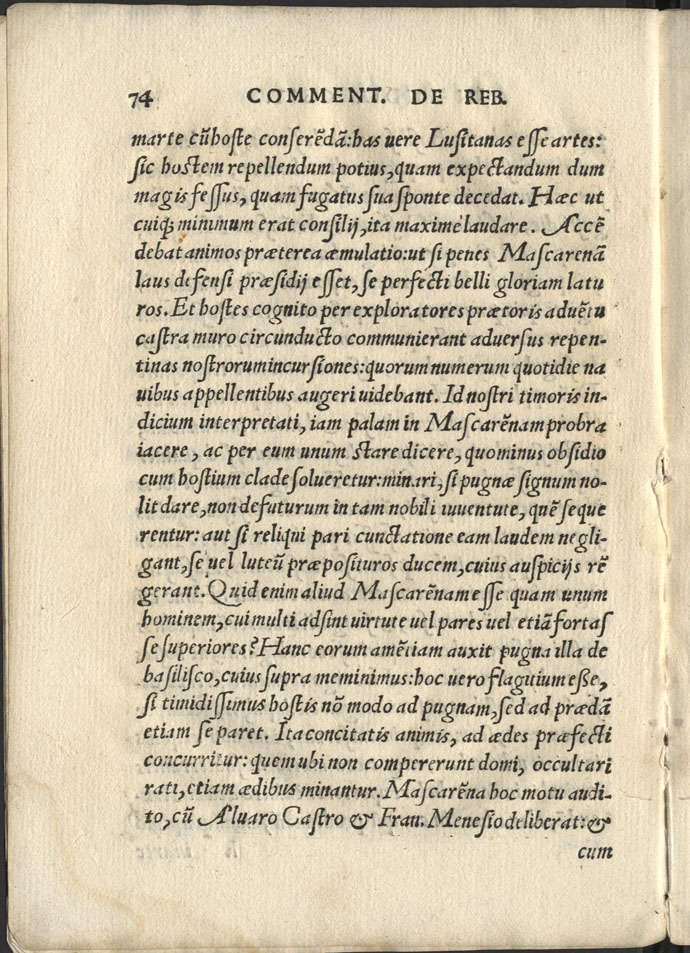 74 COMMENT. DE REB.
marte cũ hoste conserẽdã: has uere Lusitanas esse artes:
sic hostem repellendum potius, quam expectandum dum
magis fessus, quam fugatus sua sponte decedat. Hæc ut
cuiq; minimum erat consilij, ita maxime laudare. Accẽ
debat animos præterea æmulatio: ut si penes Mascarenã
laus defensi præsidij esset, se perfecti belli gloriam latu
ros. Et hostes cognito per exploratores prætoris aduẽtu
castra muro circunducto communierant aduersus repen-
tinas nostrorum incursiones: quorum numerum quotidie na
uibus appellentibus augeri uidebant. Id nostri timoris in-
dicium interpretati, iam palam in Mascarẽnam probra
iacere, ac per eum unum stare dicere, quominus obsidio
cum hostium clade solueretur: minari, si pugnæ signum no-
lit dare, non defuturum in tam nobili iuuentute, quẽ seque
rentur: aut si reliqui pari cunctatione eam laudem negli-
gant, se uel luteũ præposituros ducem, cuius auspicijs rẽ
gerant. Quid enim aliud Mascarẽnam esse quam unum
hominem, cui multi adsint uirtute uel pares uel etiã fortas
se superiores? Hanc eorum amẽtiam auxit pugna illa de
basilisco, cuius supra meminimus: hoc uero flagitium eße,
si timidissimus hostis nõ modo ad pugnam, sed ad prædã
etiam se paret. Ita concitatis animis, ad ædes præfecti
concurritur: quem ubi non compererunt domi, occultari
rati, etiam ædibus minantur. Mascarẽna hoc motu audi-
to, cũ Aluaro Castro & Fran. Menesio deliberat: &
cum